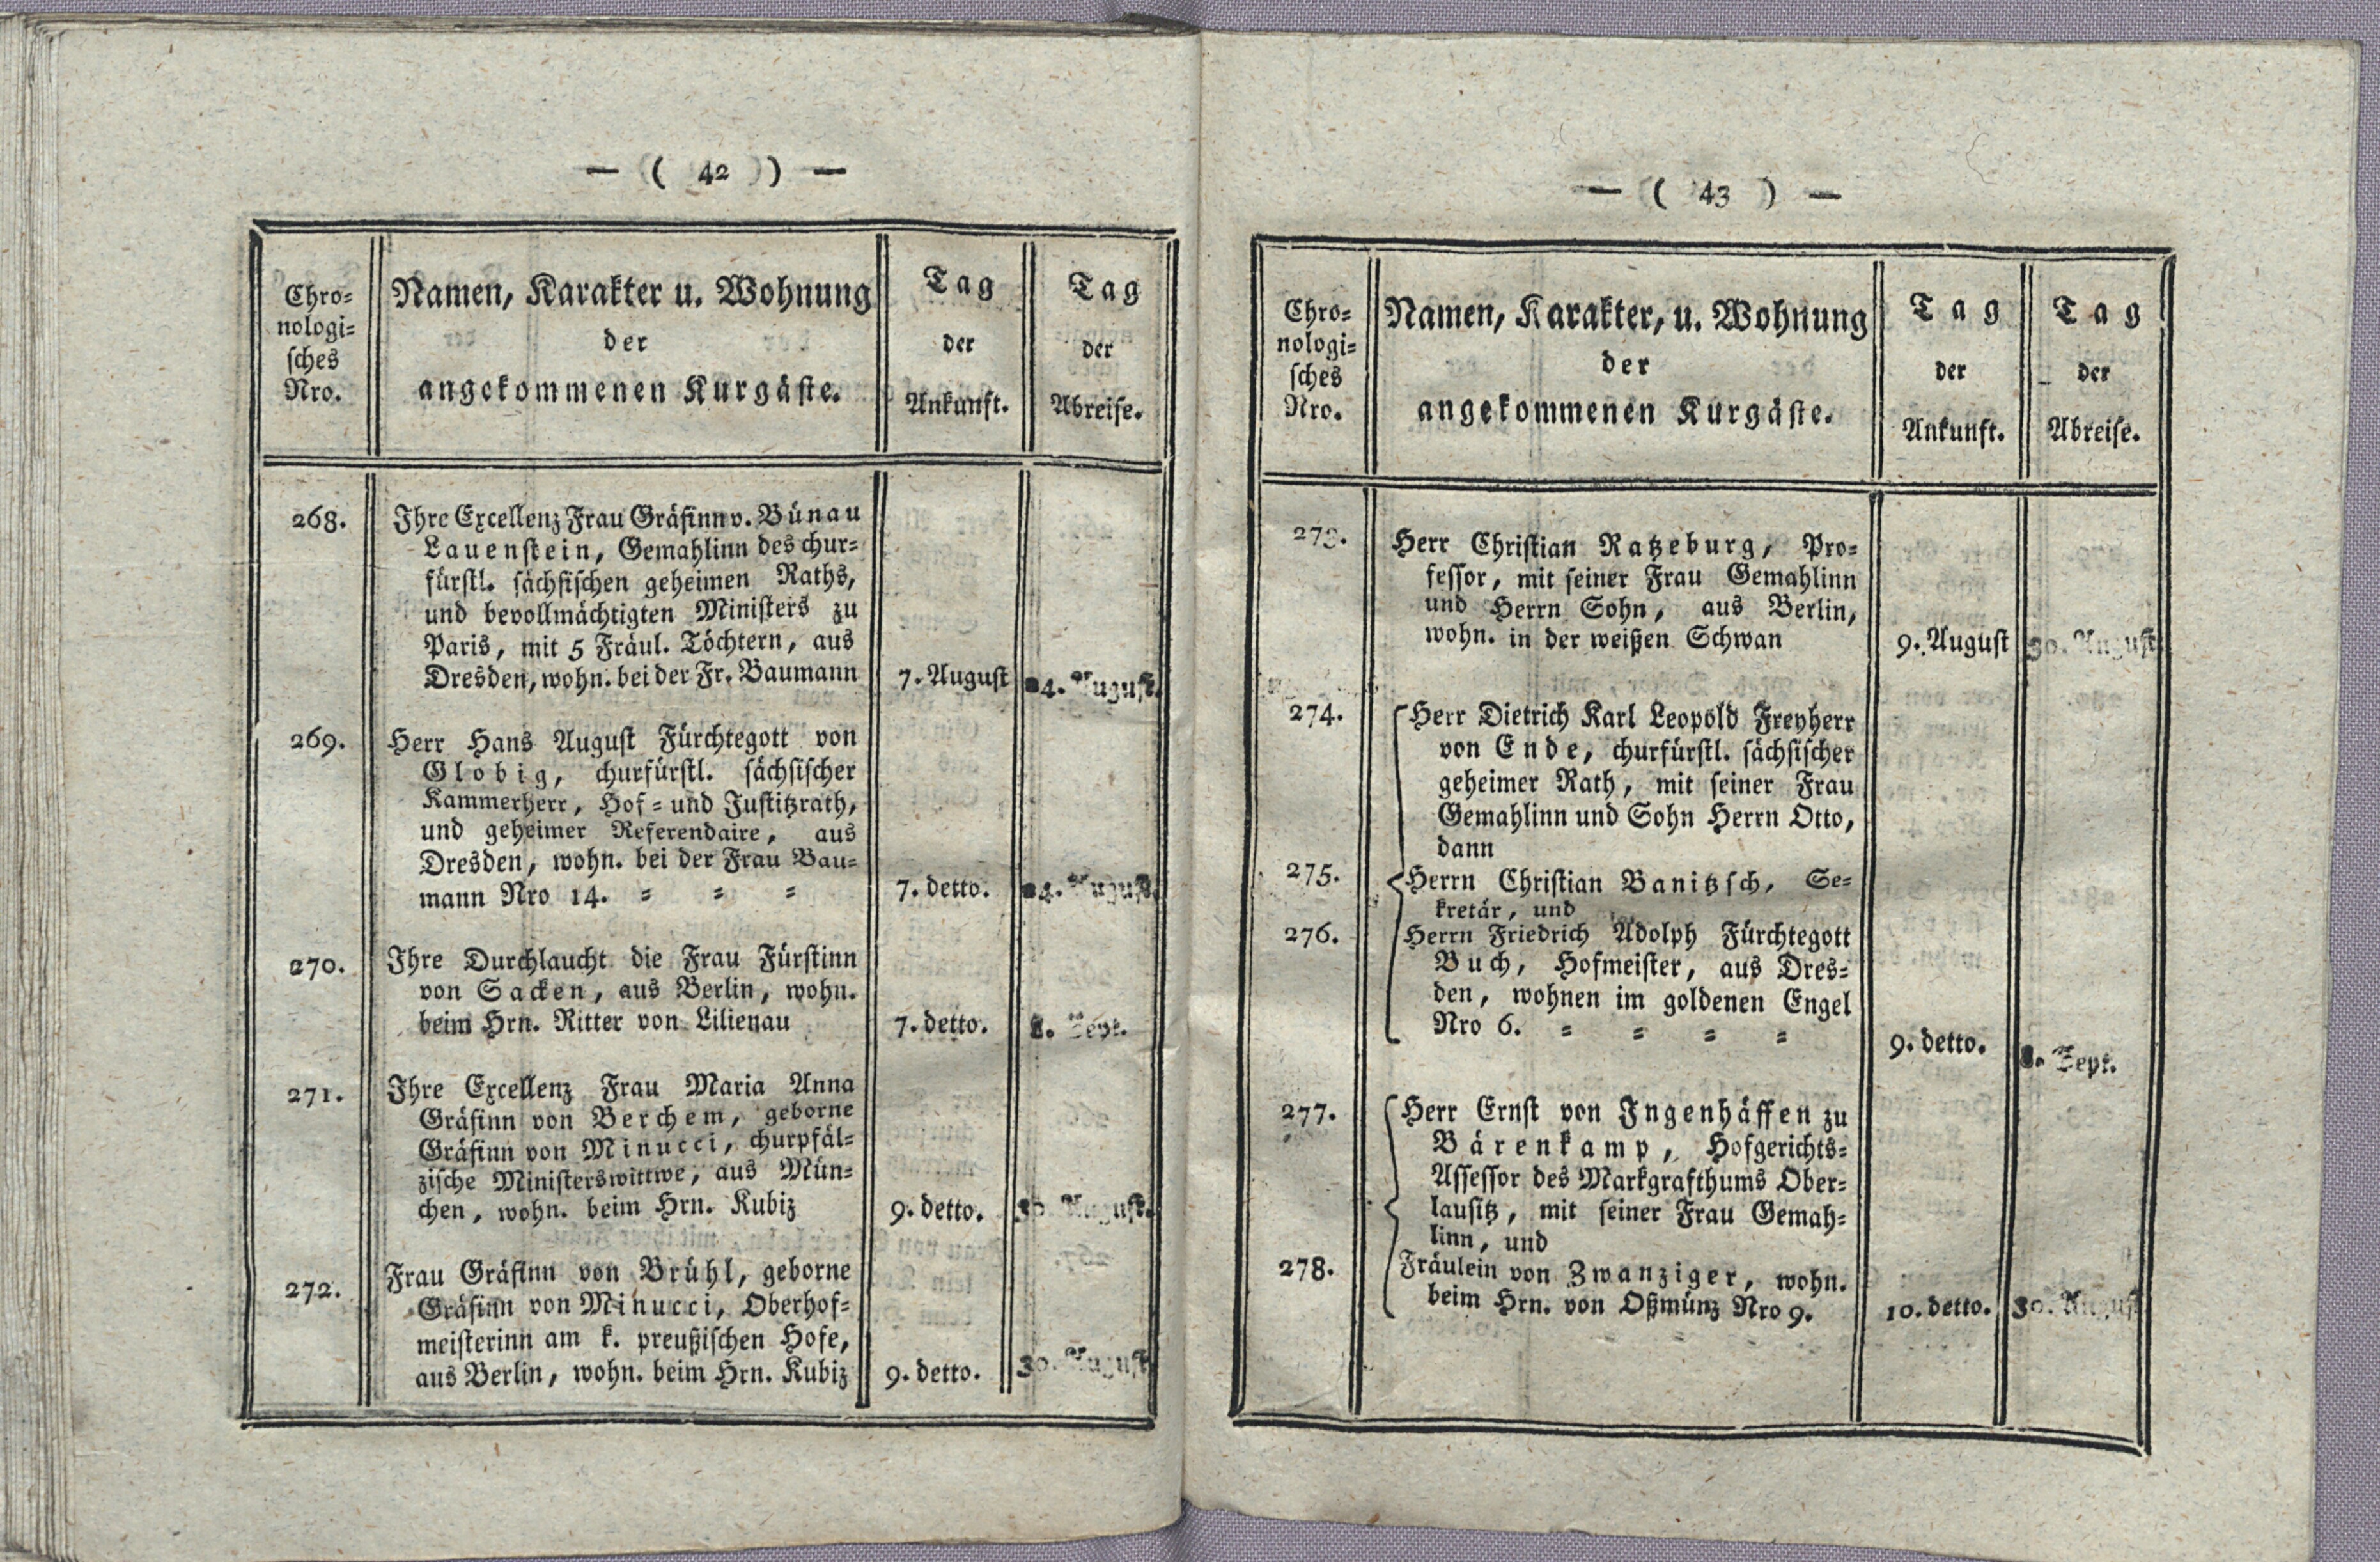 — ( 42 ) —
Chro-
nologi-
sches
Nro.
Namen, Karakter u. Wohnung
der
angekommenen Kurgäste.
Tag
der
Ankunft.
Tag
der
Abreise.
268.
Ihre Excellenz Frau Gräfinn v. Bünau
Lauenstein, Gemahlinn des chur-
fürstl. sächsischen geheimen Raths,
und bevollmächtigten Ministers zu
Paris, mit 5 Fräul. Töchtern, aus
Dresden, wohn. bei der Fr. Baumann
7. August
24. August.
269.
Herr Hans August Fürchtegott von
Globig, churfürstl. sächsischer
Kammerherr, Hof- und Justitzrath,
und geheimer Referendaire, aus
Dresden, wohn. bei der Frau Bau-
mann Nro 14. = = =
7. detto.
24. August.
270.
Ihre Durchlaucht die Frau Fürstinn
von Sacken, aus Berlin, wohn.
beim Hrn. Ritter von Lilienau
7. detto.
Sept.
271.
Ihre Excellenz Frau Maria Anna
Gräfinn von Berchem, geborne
Gräfinn von Minucci, churpfäl-
zische Ministerswittwe, aus Mün-
chen, wohn. beim Hrn. Kubiz
9. detto.
30. August.
272.
Frau Gräfinn von Brühl, geborne
Gräfinn von Minucci, Oberhof-
meisterinn am k. preußischen Hofe,
aus Berlin, wohn. beim Hrn. Kubiz
9. detto.
30. August
— ( 43 ) —
Chro-
nologi-
sches
Nro.
Namen, Karakter, u. Wohnung
der
angekommenen Kurgäste.
Tag
der
Ankunft.
Tag
der
Abreise.
273.
Herr Christian Ratzeburg, Pro-
fessor, mit seiner Frau Gemahlinn
und Herrn Sohn, aus Berlin,
wohn. in der weißen Schwan
9. August
30. August
274.
Herr Dietrich Karl Leopold Freyherr
von Ende, churfürstl. sächsischer
geheimer Rath, mit seiner Frau
Gemahlinn und Sohn Herrn Otto,
dann
275.
Herrn Christian Banitzsch, Se-
kretär, und
276.
Herrn Friedrich Adolph Fürchtegott
Buch, Hofmeister, aus Dres-
den, wohnen im goldenen Engel
Nro 6. = = = =
9. detto.
Sept.
277.
Herr Ernst von Ingenhäffen zu
Bärenkamp, Hofgerichts-
Assessor des Markgrafthums Ober-
lausitz, mit seiner Frau Gemah-
linn, und
278.
Fräulein von Zwanziger, wohn.
beim Hrn. von Oßmünz Nro 9.
10. detto.
30. August